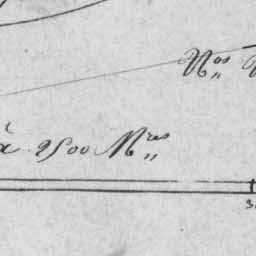 N.os
à 2500 M.res
3